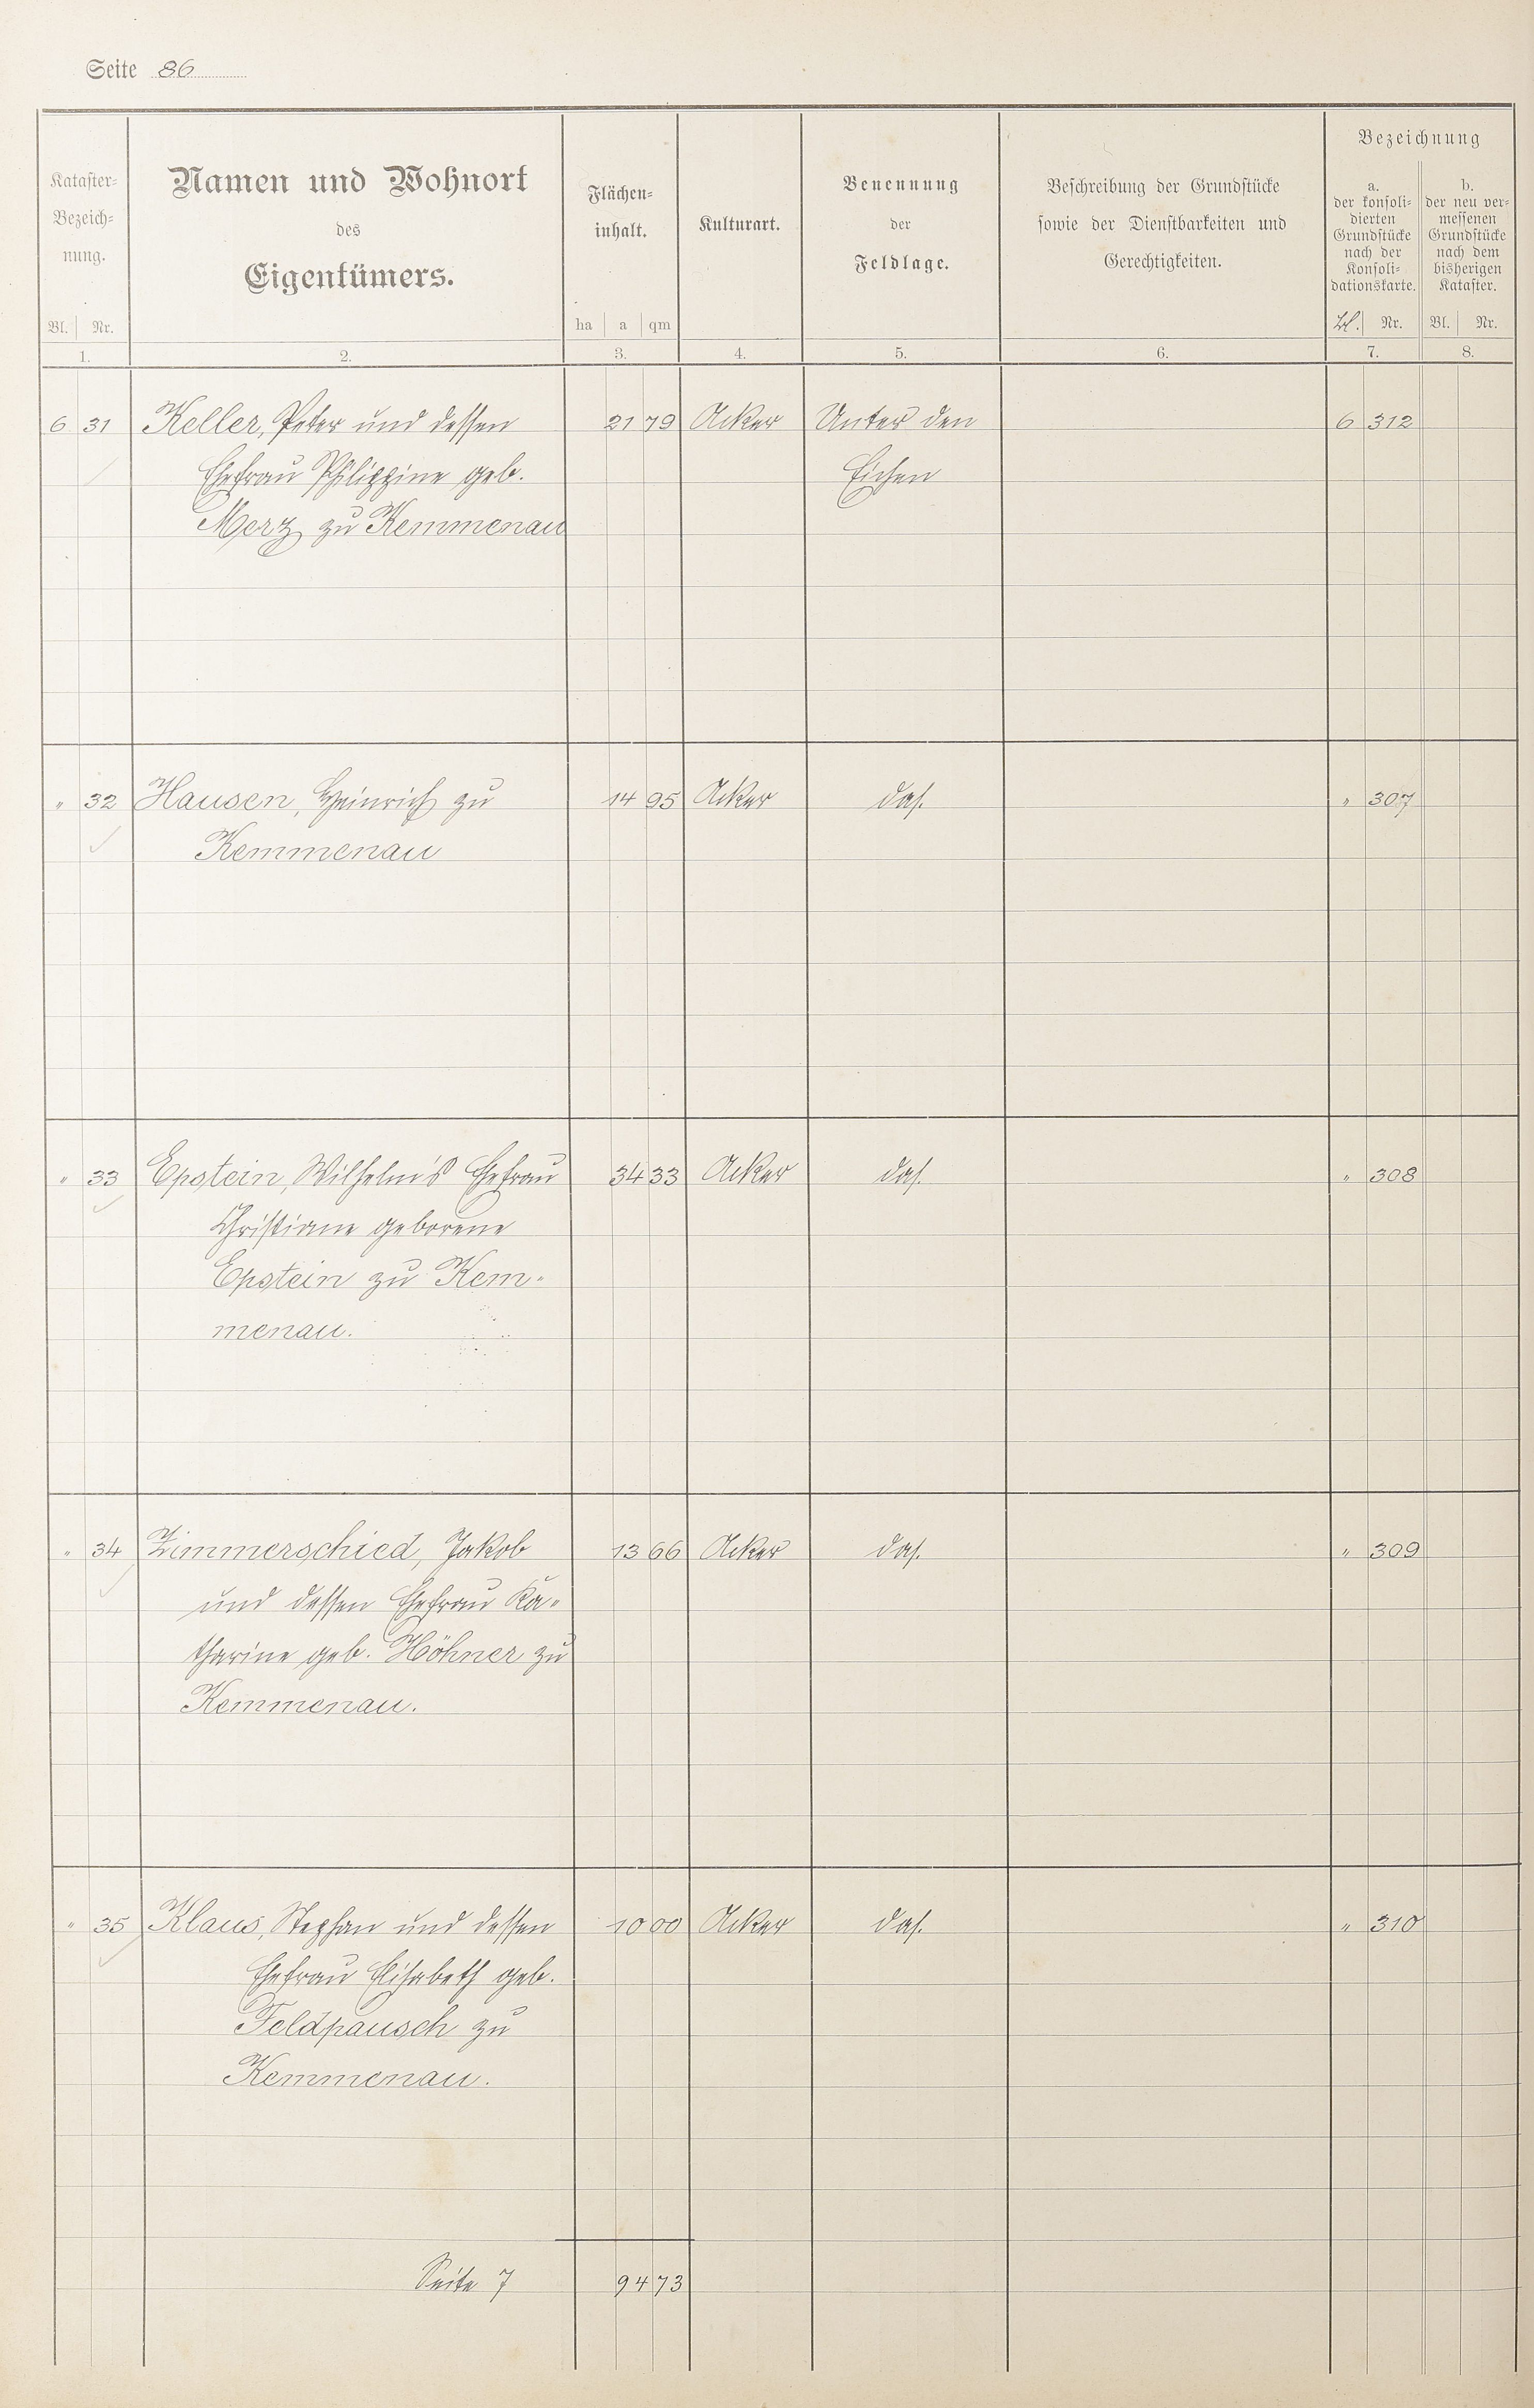 Seite 86
Kataster-
Bezeich-
nung.
Bl. Nr.
1.
Namen und Wohnort
des
Eigentümers.
2.
Flächen-
inhalt.
ha a qm
3.
Kulturart.
4.
Benennung
der
Feldlage.
5.
Beschreibung der Grundstücke
sowie der Dienstbarkeiten und
Gerechtigkeiten.
6.
Bezeichnung
a.
der konsoli-
dierten
Grundstücke
nach der
Konsoli-
dationskarte.
Bl. Nr.
7.
b.
der neu ver-
messenen
Grundstücke
nach dem
bisherigen
Kataster.
Bl. Nr.
8.
6 31 Keller, Peter und dessen 21 79 Acker Unter den 6 312
Ehefrau Philippine geb. Eichen
Merz zu Kemmenau
" 32 Hausen, Heinrich zu 14 95 Acker das. " 307
Kemmenau
" 33 Epstein, Wilhelm's Ehefrau 34 33 Acker das. " 308
Christiane geborene
Epstein zu Kem-
menau.
" 34 Zimmerschied, Jakob 13 66 Acker das. " 309
und dessen Ehefrau Ka-
tharine geb. Höhner zu
Kemmenau.
" 35 Klaus, Stephan und dessen 10 00 Acker das. " 310
Ehefrau Elisabeth geb.
Feldpausch zu
Kemmenau.
Seite 7 94 73